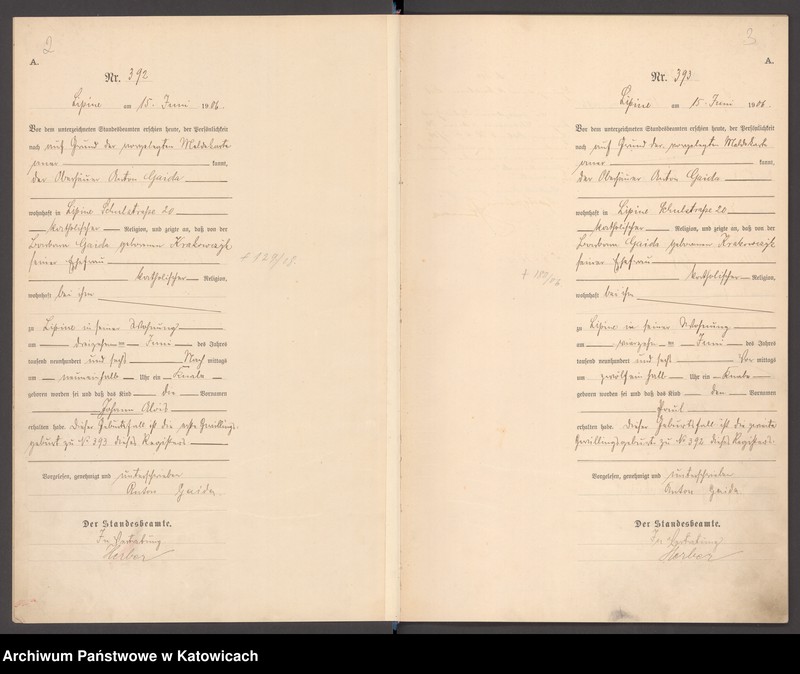 2
A.
Nr. 392
Lipine am 15. Juni 1906.
Vor dem unterzeichneten Standesbeamten erschien heute, der Persönlichkeit
nach auf Grund der vorgelegten Meldekarte
kannt,
der Oberhäuer Anton Gaida
wohnhaft in Lipine Schulstraße 20
katholischer Religion, und zeigte an, daß von der
Barbara Gaida geborenen Krakowczyk
seiner Ehefrau
katholischer Religion,
wohnhaft bei ihm
zu Lipine in seiner Wohnung
am dreizehn ten Juni des Jahres
tausend neunhundert und sechs Nach mittags
um neuneinhalb Uhr ein Knabe
geboren worden sei und daß das Kind die Vornamen
Johann Alois
erhalten habe. Dieser Geburtsfall ist die erste Zwillings-
geburt zu No 393 dieses Registers
Vorgelesen, genehmigt und unterschrieben
Anton Gaida
Der Standesbeamte.
In Vertretung
Herbar
3
A.
Nr. 393
Lipine am 15. Juni 1906.
Vor dem unterzeichneten Standesbeamten erschien heute, der Persönlichkeit
nach auf Grund der vorgelegten Meldekarte
kannt,
der Oberhäuer Anton Gaida
wohnhaft in Lipine Schulstraße 20
katholischer Religion, und zeigte an, daß von der
Barbara Gaida geborenen Krakowczyk
seiner Ehefrau
katholischer Religion,
wohnhaft bei ihm
zu Lipine in seiner Wohnung
am vierzehn ten Juni des Jahres
tausend neunhundert und sechs Vor mittags
um zwölfeinhalb Uhr ein Knabe
geboren worden sei und daß das Kind den Vornamen
Paul
erhalten habe. Dieser Geburtsfall ist die zweite
Zwillingsgeburt zu No 392 dieses Registers.
Vorgelesen, genehmigt und unterschrieben
Anton Gaida
Der Standesbeamte.
In Vertretung
Herbar
Archiwum Państwowe w Katowicach